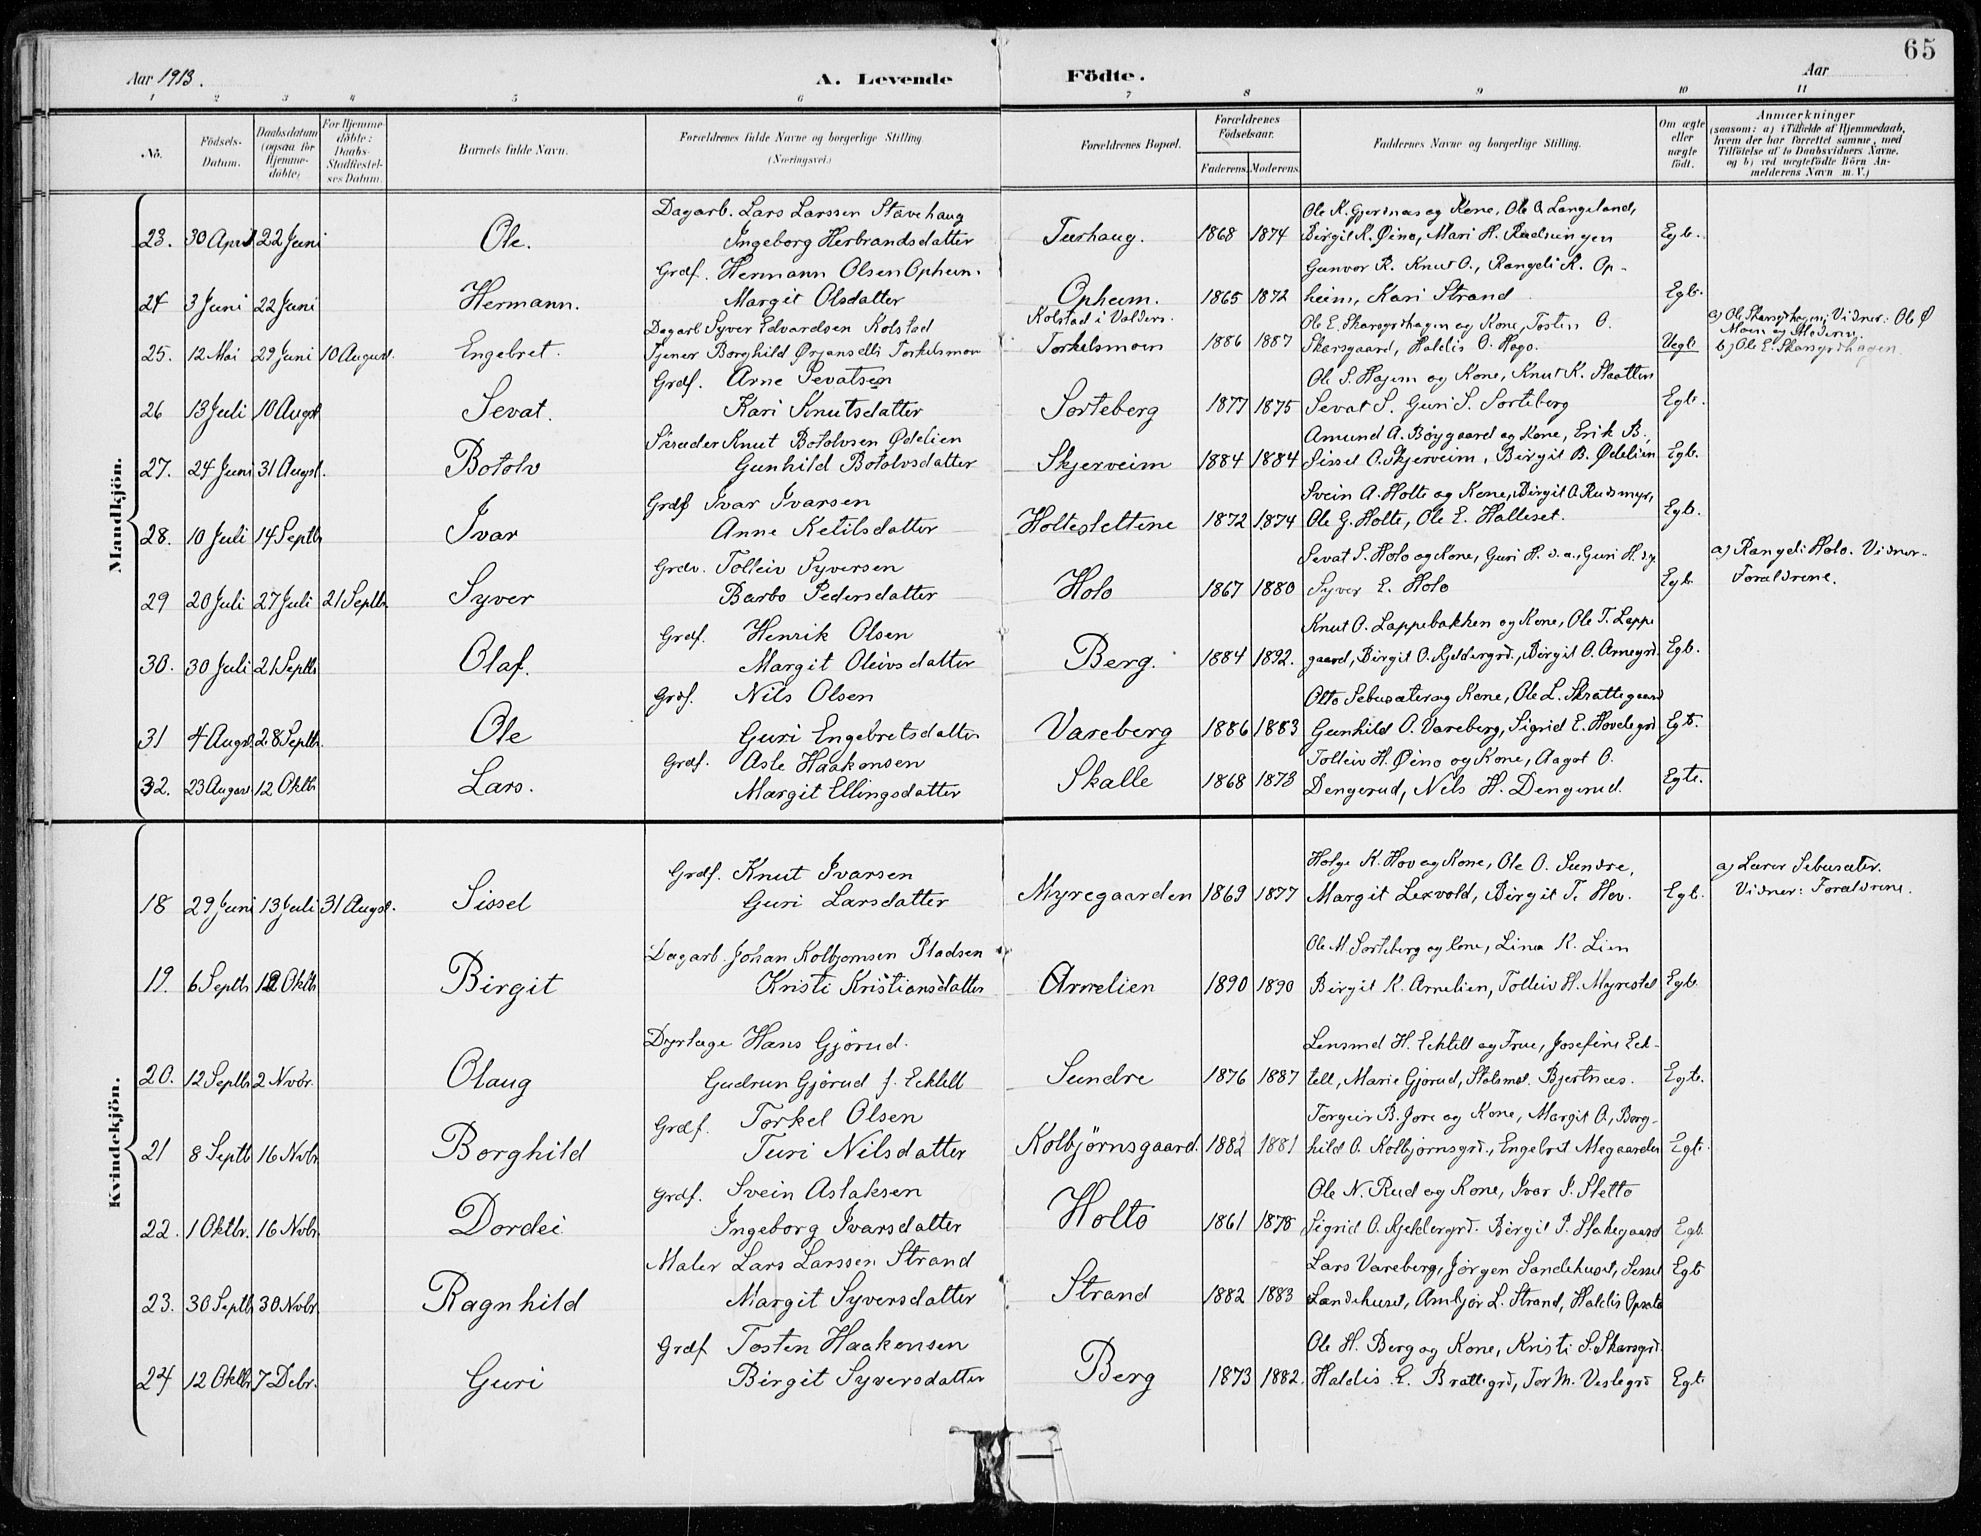 65
Aar 1913.
A. Levende Födte.
Aar
1 2 3 4 5 6 7 8 9 10 11
No.
Födsels-Datum.
Daabsdatum (ogsaa for Hjemme-döbte)
For Hjemme-döbte: Daabs-Stadfæstel-ses Datum.
Barnets fulde Navn.
Forældrenes fulde Navne og borgerlige Stilling (Næringsvei.)
Forældrenes Bopæl.
Forældrenes Födselsaar.
Faderens. Moderens.
Faddernes Navne og borgerlige Stilling.
Om ægte eller uægte födt.
Anmærkninger (saasom: a) i Tilfælde af Hjemmedaab, hvem der har forrettet samme, med Tilföielse af to Daabsvidners Navne. og b) ved uægtefödte Börn An-melderens Navn m. V.)
Mandkjön.
Dagarb. Lars Larssen Stavehaug
Ole K. Gjerdnæs og Kone, Ole O. Langeland,
23. 30 April 22 Juni Ole. Ingeborg Herbrandsdatter Turhaug. 1868 1874 Birgit K. Øino, Mari H. Rudningen Egte.
Grdf. Hermann Olsen Opheim.
Gunvor K. Knut O., Rangdi K. Op-
24 3 Juni 22 Juni Hermann. Margit Olsdatter Opheim. 1865 1872 heim, Kari Strand Egte.
Dagarb Syver Edvardsen Kolstad
Kolstad i Valders.
Ole E. Skarsgrdhagen og Kone, Tosten O.
a) Ole Skarsgrdhagen, Vidner: Ole Ø
Moen og Moderen,
25. 12 Mai 29 Juni 10 August. Engebret. Tjener Borghild Ørjansdtr Torkelsmoen Torkelsmoen 1886 1887 Skarsgaard, Haldis O. Hago. Uegte
b) Ole E. Skarsgrdhagen.
Grdf. Arne Sevatsen
Ole S. Hagen og Kone, Knut K. Slaatten
26 13 Juli 10 Augst Sevat. Kari Knutsdatter Sorteberg 1877 1875 Sevat S. Guri S. Sorteberg Egte.
Skræder Knut Botolvsen Ødelien
Amund A. Bøygaard og Kone, Erik B.,
27. 24 Juni 31 Augst. Botolv Gunhild Botolvsdatter Skjerveim 1884 1884 Sissel O. Skjerveim, Birgit B. Ødelien Egte.
Grdf Ivar Ivarsen
Svein A. Holto og Kone, Birgit O. Rudsmyr,
28. 10 Juli 14 Septbr Ivar Anne Ketilsdatter Holteslettene 1872 1874 Ole G. Holte, Ole E. Halleset. Egte.
Grdv. Tolleiv Syversen
Sevat S. Holo og Kone, Guri H. d. a., Guri H. d. y.
a) Rangdi Holo. Vidner:
Forældrene.
29 20 Juli 27 Juli 21 Septbr. Syver Barbo Pedersdatter Holo 1867 1880 Syver E. Holo Egte.
Grdf. Henrik Olsen
Knut O. Lappebakken og Kone, Ole T. Lappe
30. 30 Juli 21 Septbr Olaf. Margit Oleivsdatter Berg. 1884 1892. gaard, Birgit O. Kjeldergrd., Birgit O. Arnegrd. Egte.
Grdf. Nils Olsen
Otto Sebusæter og Kone, Ole L. Skrattegaard
31 4 Augst. 28 Septbr. Ole Guri Engebretsdatter Vareberg 1886 1883 Gunhild O. Vareberg, Sigrid E. Hovdegrd Egte.
Grdf. Asle Haakonsen
Tolleiv H. Øino og Kone, Aagot O.
32. 23 August 12 Oktbr Lars. Margit Ellingsdatter Skalle 1868 1873 Dengerud, Nils H. Dengerud. Egte.
Kvindekjön.
Grdf. Knut Ivarsen
Helge K. Hov og Kone, Ole O. Sundre,
a) Lærer Sebusæter.
Vidner: Forældrene.
18 29 Juni 13 Juli 31 Augst. Sissel Guri Larsdatter Myregaarden 1869 1877 Margit Lexvold, Birgit T. Hov. Egte.
Dagarb. Johan Kolbjørnsen Pladsen
Ole M. Sorteberg og Kone, Lina K. Lien
19. 6 Septbr 12 Oktbr Birgit Kristi Kristiansdatter Arnelien 1890 1890 Birgit K. Arnelien, Tolleiv H. Myrestøl Egte.
Dyrlæge Hans Gjørud.
Lensmd H. Ecktell og Frue, Josefine Eck-
20. 12 Septbr 2 Novbr. Olaug Gudrun Gjørud f. Ecktell Sundre 1876 1887 tell, Marie Gjørud, Statsmd. Bjertnæs. Egte.
Grdf. Torkel Olsen
Torgeir B. Jore og Kone, Margit O., Borg-
21 8 Septbr 16 Novbr Borghild Turi Nilsdatter Kolbjørnsgaard. 1882 1881 hild O. Kolbjørnsgrd., Engebret Megaarden Egte.
Grdf. Svein Aslaksen
Ole N. Rud og Kone, Ivar S. Sletto
22. 1 Oktbr. 16 Novbr. Dordei Ingeborg Ivarsdatter Holto 1861 1878 Sigrid O. Kjeldergrd. Birgit P. Stakegaard Egte.
Maler Lars Larssen Strand
Lars Vareberg, Jørgen Sandehuset, Sissel Egte
23. 30 Septbr 30 Novbr. Ragnhild Margit Syversdatter Strand 1882 1883 Sandehuset, Ambjør L. Strand, Haldis Opsata
Grdf Tosten Haakensen
Ole H. Berg og Kone, Kristi S. Skarsgrd.
24 12 Oktbr. 7 Debr. Guri Birgit Syversdatter Berg 1873 1882. Haldis E. Brattegrd, Tor M. Veslegrd Egte